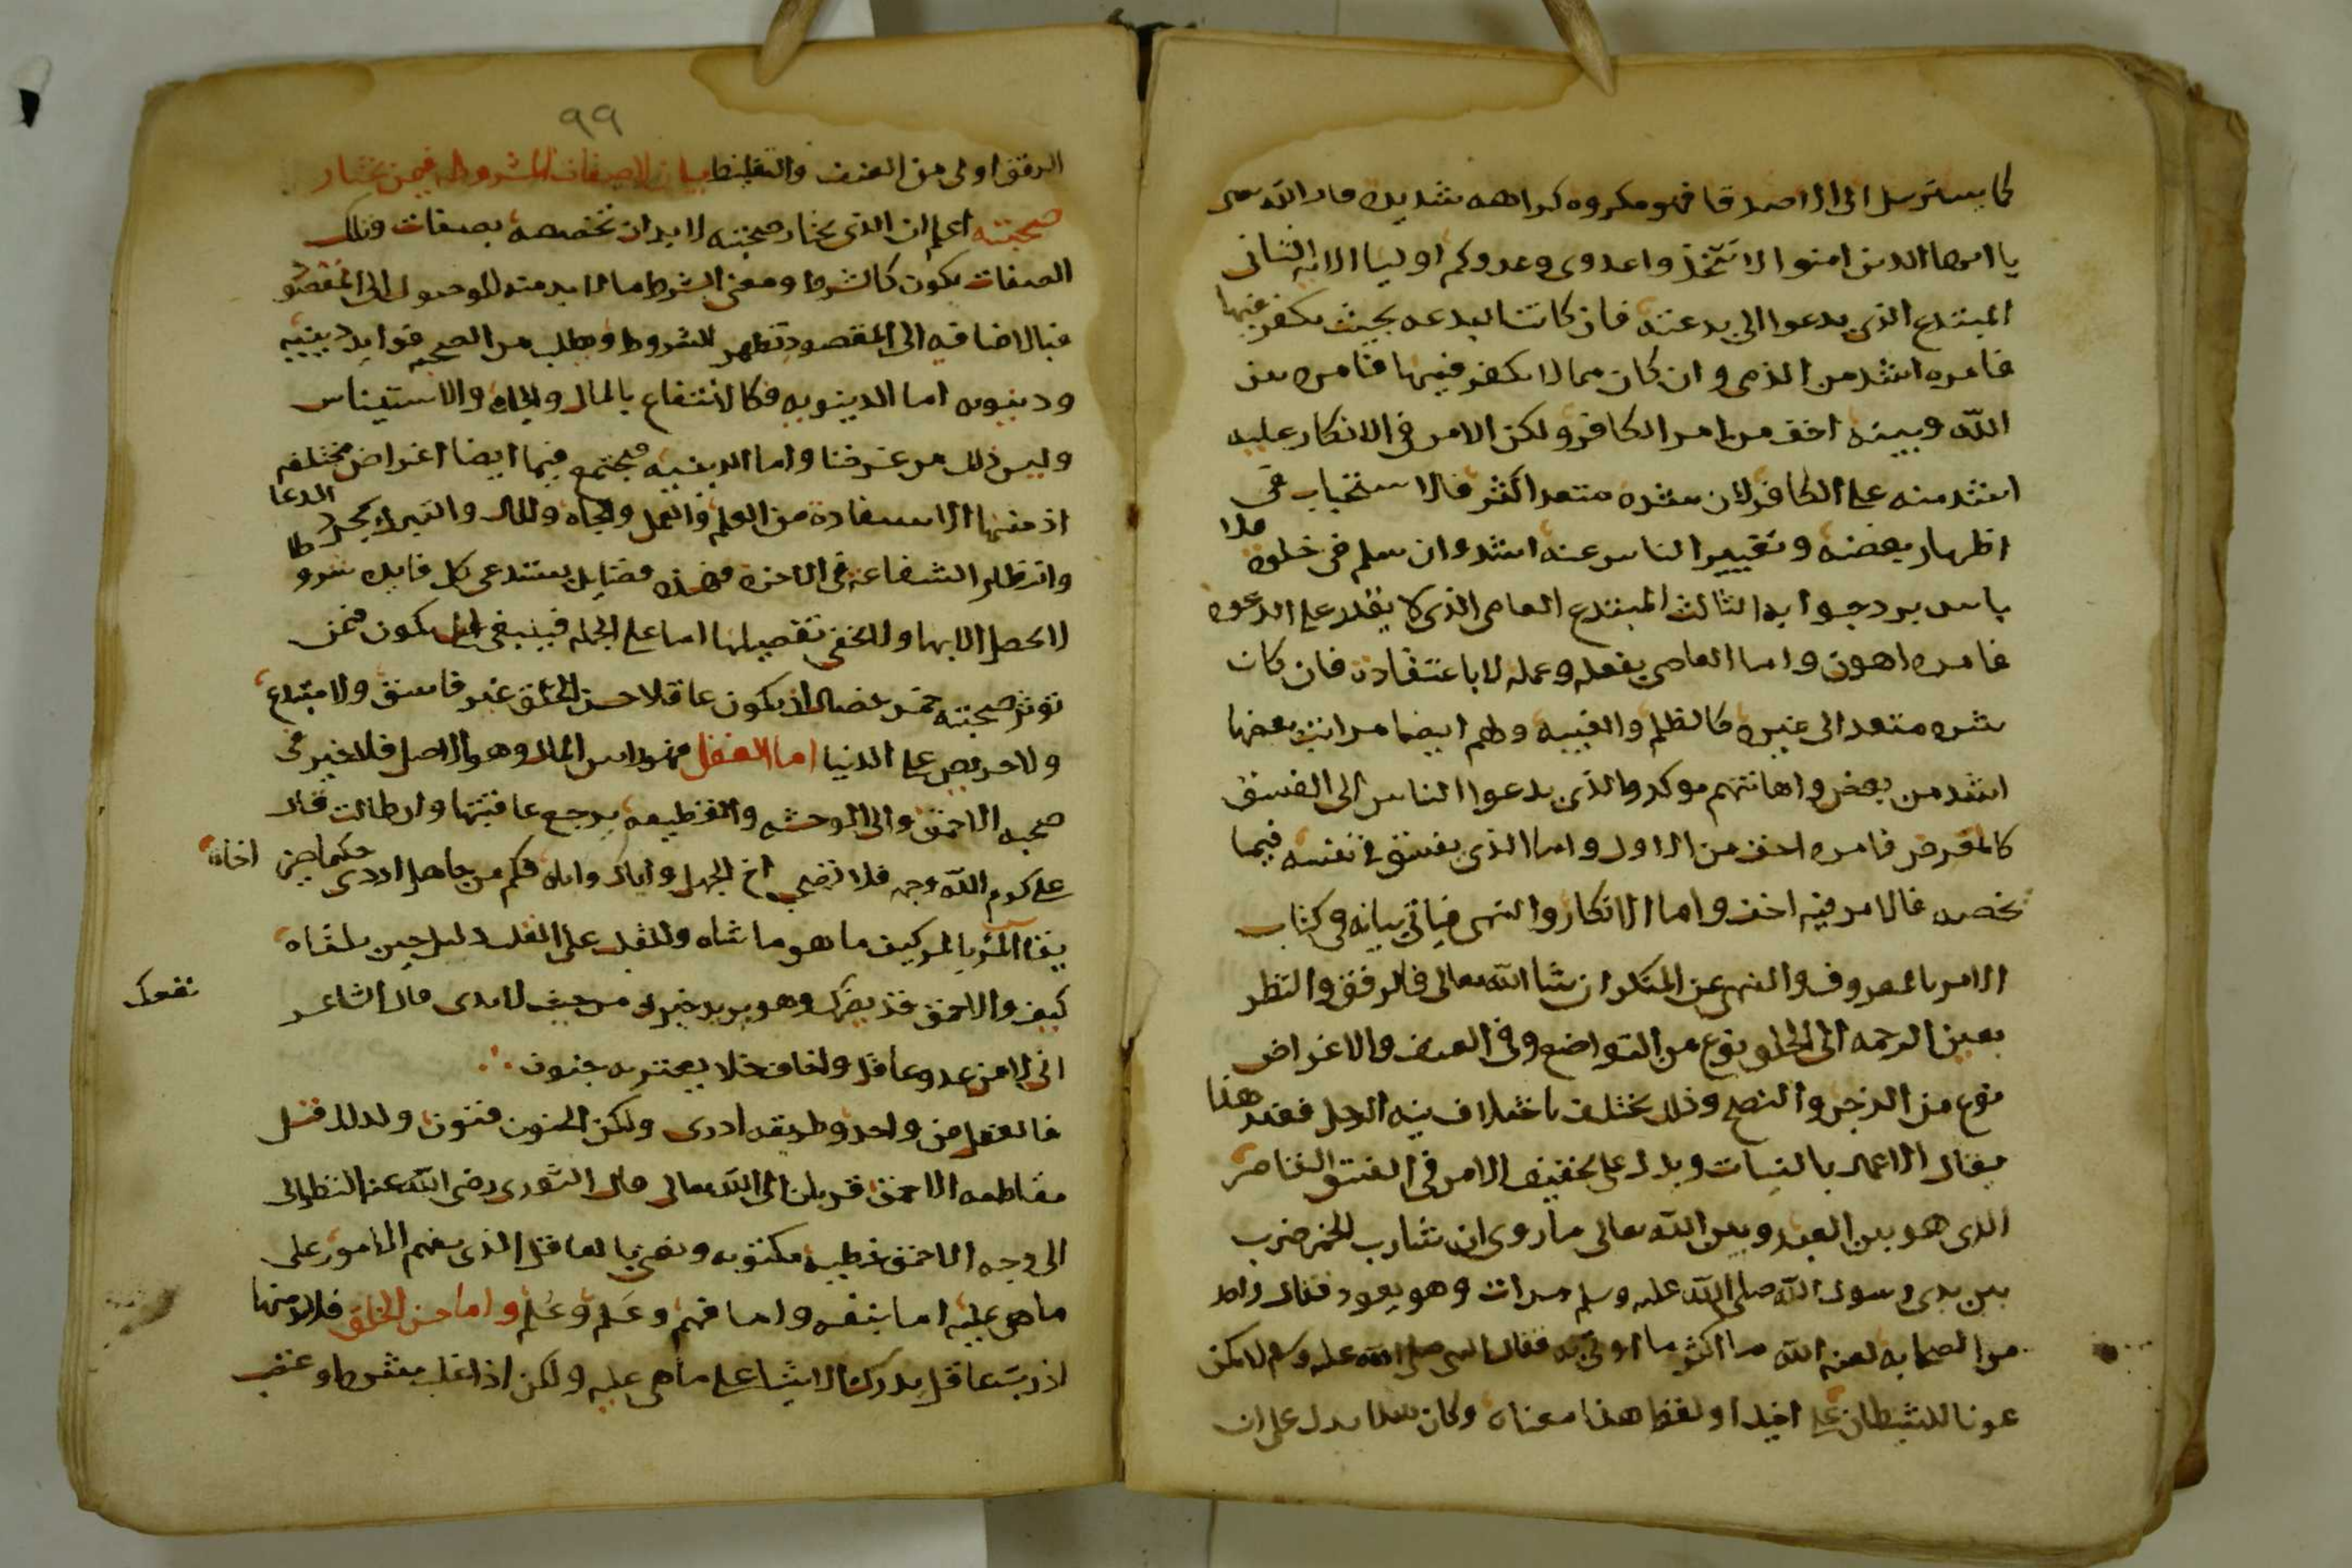 كما يسترسل الى الاصدقا فهو مكروه كراهه شديده قال الله تعالى
يا ايها الذين امنوا لا تتخذوا عدوى وعدوكم اوليا الايه الثانى
المبتدع الذى يدعوا الى بدعته فان كانت البدعه بحيث يكفر فيها
فامره اشد من الذمى وان كان مما لا يكفر فيها فامره بين
الله وبينه اخف من امر الكافر ولكن الامر فى الانكار عليه
اشد منه على الكافر لان شره متعد اكثر فالاستحباب فى
اظهار بغضه وتغيير الناس عنه اشد وان سلم فى خلوه فلا
باس برد جوابه الثالث المبتدع العامى الذى لا يقدر على الدعوه
فامره اهون واما العاصى بفعله وعمله لا باعتقاده فان كان
شره متعد الى غيره كالظلم والغيبه ولهم ايضا مراتب بعضها
اشد من بعض واهانتهم موكد والذى يدعوا الناس الى الفسق
كالمقرض فامره اخف من الاول واما الذى يفسق فى نفسه فيما
يخصه فالامر فيه اخف واما الانكار والنهى فياتى بيانه فى كتاب
الامر بالمعروف والنهى عن المنكر ان شا الله تعالى فالرفق والنظر
بعين الرحمه الى الخلق نوع من التواضع وفى العنف والاعراض
نوع من الزجر والنصح وذلك يختلف باختلاف نيه الرجل فعند هذا
يقال الاعمال بالنيات ويدل على تخفيف الامر فى الفسق القاصر
الذى هو بين العبد وبين الله تعالى ما روى ان شارب الخمر ضرب
بين يدى رسول الله صلى الله عليه وسلم مرات وهو يعود فقال واحد
من الصحابه لعنه الله ما اكثر ما اوتى به فقال النبى صلى الله عليه وسلم لا تكن
عونا للشيطان على اخيك او لفظ هذا معناه وكان هذا يدل على ان
٩٩
الرفق اولى من العنف والتغليظ بيان الاصفات المشروطه فيمن تختار
صحبته اعلم ان الذى تختار صحبته لابد ان تخصصه بصفات وتلك
الصفات يكون كالشرط ومعنى الشرط ما لابد منه للوصول الى المقصود
فبالاضافه الى المقصود تظهر الشروط ويطلب من الصحبه فوايد دينيه
ودنيويه اما الدينويه فكالانتفاع بالمال والجاه والاستيناس
وليس ذلك من غرضنا واما الدينيه فيجتمع فيها ايضا اغراض مختلفه
اذ منها الاستفاده من العلم والعمل والجاه والمال والتبرك بمجرد الدعا
وانتظار الشفاعه فى الاخره فهذه فضايل يستدعى كل فايده شروطا
لا تحصل الا بها ولا يخفى تفصيلها اما على الجمله فينبغى ان يكون فيمن
تؤثر صحبته خمس خصال ان يكون عاقلا حسن الخلق غير فاسق ولا مبتدع
ولا حريص على الدنيا اما العقل فهو راس المال وهو الاصل فلا خير فى
صحبه الاحمق والى الوحشه والقطيعه يرجع عاقبتها وان طالت قال
على كرم الله وجهه فلا تصحب اخ الجهل واياك واياه فكم من جاهل اردى حكيما حين اخاه
يقاس المرء بالمر كيف ما هو ماشاه وللقلب على القلب دليل حين يلقاه
كيف والاحمق قد يضرك وهو يريد خيرك من حيث لا يدرى قال الشاعر
نفعك
انى لامن عدو عاقل واخاف خلا يعتريه جنون
فالعقل فن واحد وطريقه ادرى ولكن الجنون فنون ولذلك قيل
مقاطعه الاحمق قربان الى الله تعالى قال الثورى رضى الله عنه النظر الى
الى وجه الاحمق خطيه مكتوبه ونعنى بالعاقل الذى يفهم الامور على
ما هى عليه اما بنفسه واما فهم وعلم وعلم واما حسن الخلق فلابد منها
اذ رب عاقل يدرك الاشيا على ما هى عليه ولكن اذا غلب شره او غضب